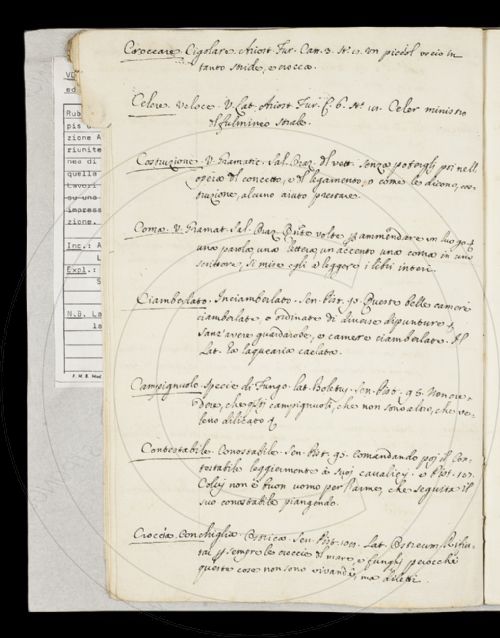 Croccare. Cigolare. Ariost. Fur. Can. 3. St. Un picciol orcio in
tanto stride, e crocca.
Celere. Veloce. V. Lat. Ariost. Fur. C. 6. St. Celer ministro
Del fulmineo strale.
Costruzione. V. Gramatic. Sal. Diaz. senza potergli poi nell'
opera del concetto, e del legamento, o come le dicono, cos-
truzione, alcuno aiuto prestare.
Coma. V. Gramat. Sal. Diaz. volte per ammendare un luogo
una parola, una lettera, un accento una coma in uno
scrittore, si mise egli a leggere i libri interi.
Ciamberlato. Inciamberlato. Sen. Pist. 90. Queste belle camere
ciamberlate, o ordinate di diverse dipunture
sanz'avere guardarobe, e camere ciamberlate. Il
Lat. ha laquearia caelata.
Campignuolo. Specie di Fungo. lat. Boletus. Sen. Pist. 95. Non cre-
dere, che questi campignuoli, che non sono altro, che ve-
leno dilicato
Contestabile. Conostabile. Sen. Pist. 95. Comandando poi il Con-
testabile leggiermente a' suoi cavalieri. e Pist. 107.
Colui non è buon uomo per l'arme, che seguita il
suo conostabile piangendo.
Croccia. Conchiglia. Ostrica. Sen. Pist. 108. Lat. Ostreum. Rifiu-
tai per sempre le croccie del mare, e funghi perocchè
queste cose non sono vivande, ma diletti.
zione A
riunite
nea di
quella
lavori
su uno
impress
zione.
Inc.: A
Expl.:
N.B. La